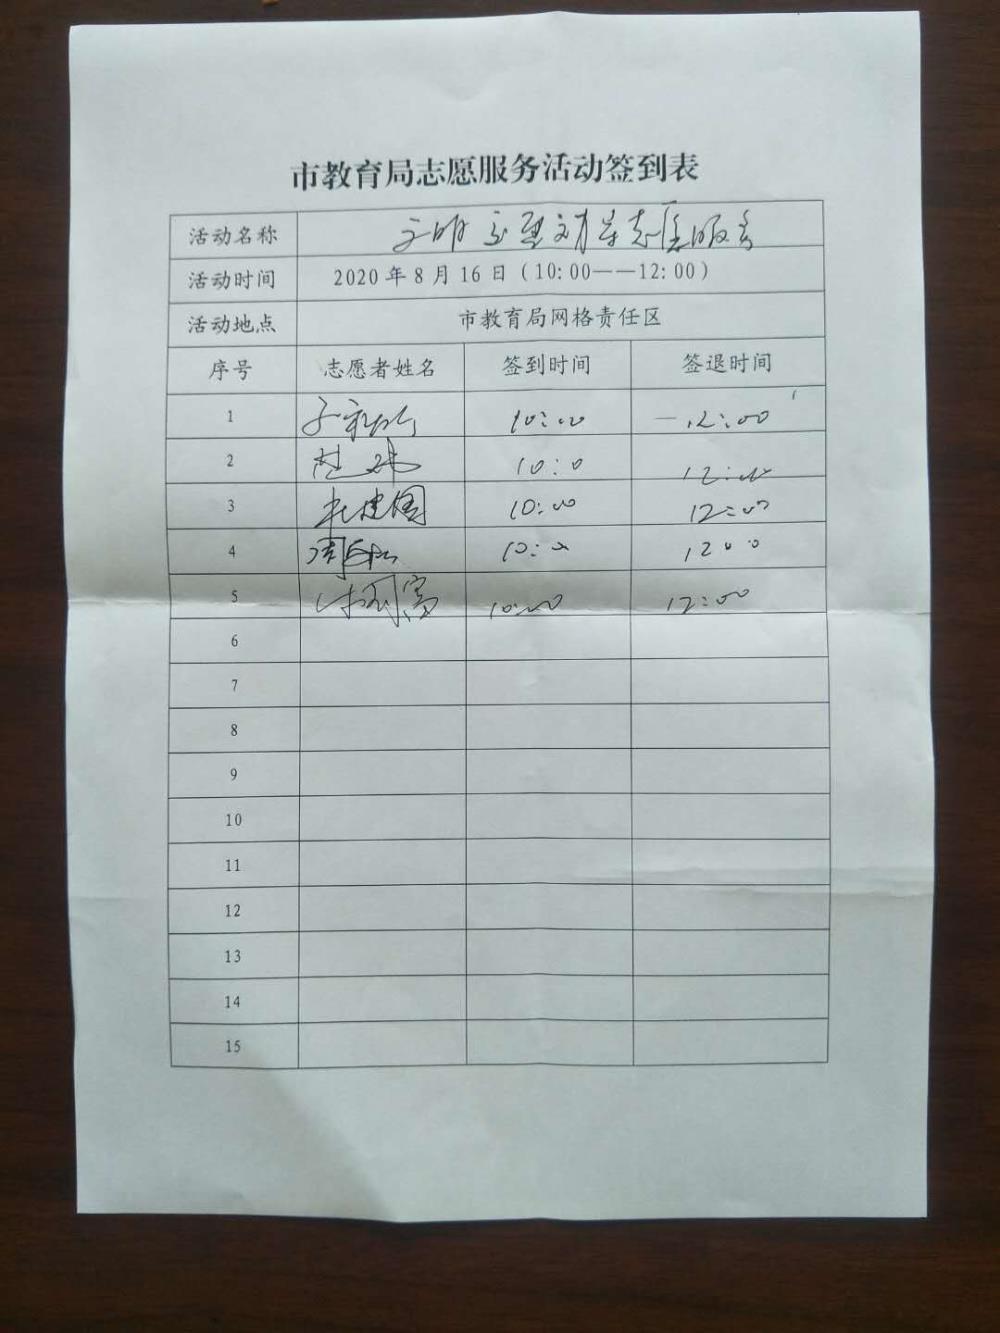 市教育局志愿服务活动签到表
活动名称 文明 志愿服务
活动时间 2020年8月16日(10:00——12:00)
活动地点 市教育局网格责任区
序号 志愿者姓名 签到时间 签退时间
1 10:00 12:00
2 10:0 12:00
3 杜建国 10:00 12:00
4 10:00 1200
5 10:00 12:00
6
7
8
9
10
11
12
13
14
15